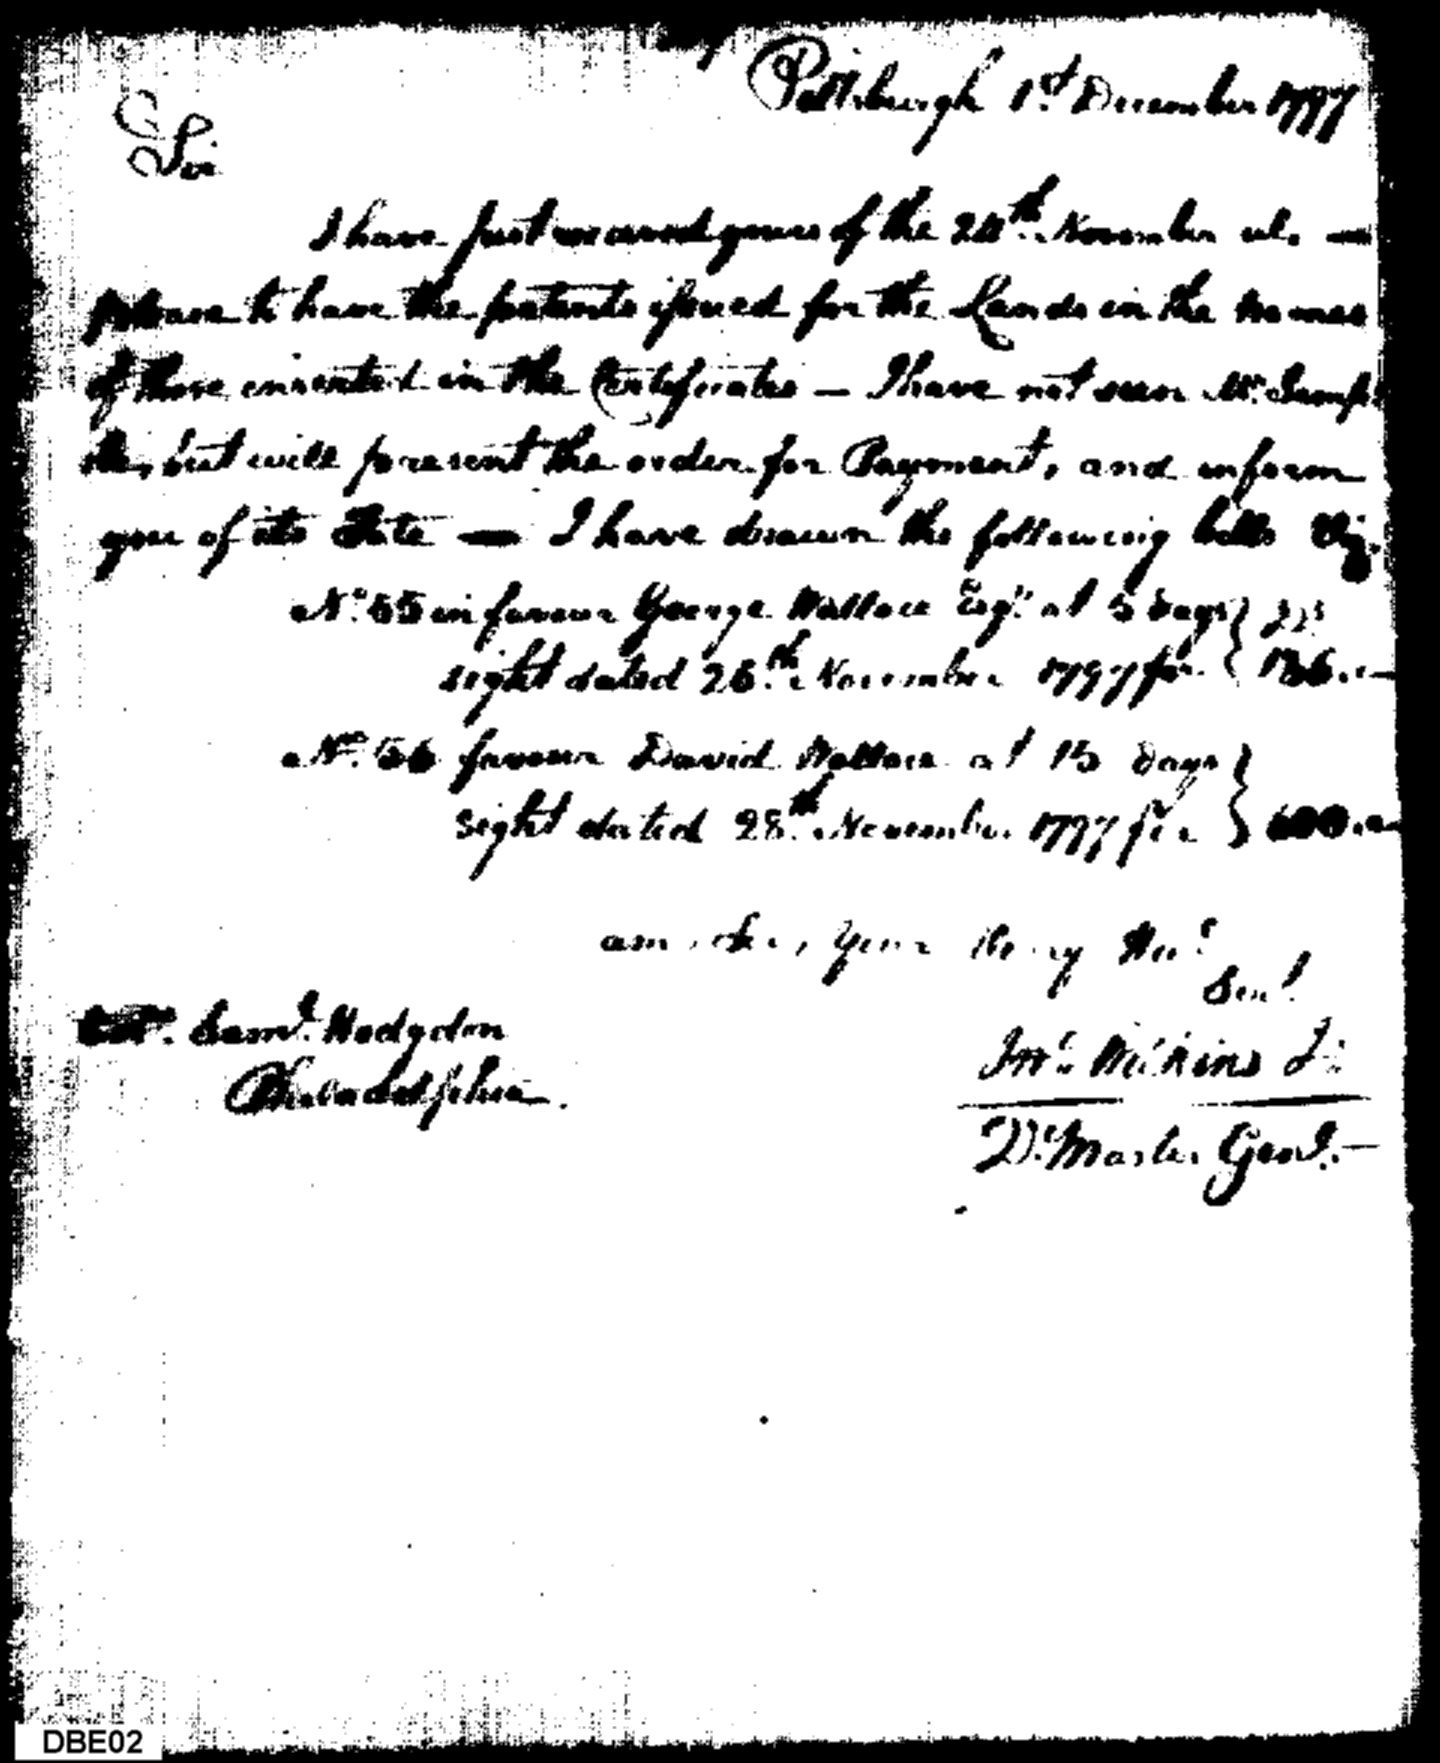 Pittsburgh 1st December 1797
Sir
I have just received yours of the 24th November ul. —
please to have the patents issued for the Lands in the names
of those inserted in the Certificates — I have not seen Mr.
but will present the order for Payment, and inform
you of its Fate — I have drawn the following bills Viz.
No. 55 in favour George Wallace Esqr. at 5 days
sight dated 26th November 1797 for
No. 56 favour David Wallace at 15 days
sight dated 28th November 1797 for 600
am Sir, Your Very Hue
Sert
Saml. Hodgdon
Philadelphia.
Jno. Wilkins Jr
Qr. Master Genl. —
DBE02